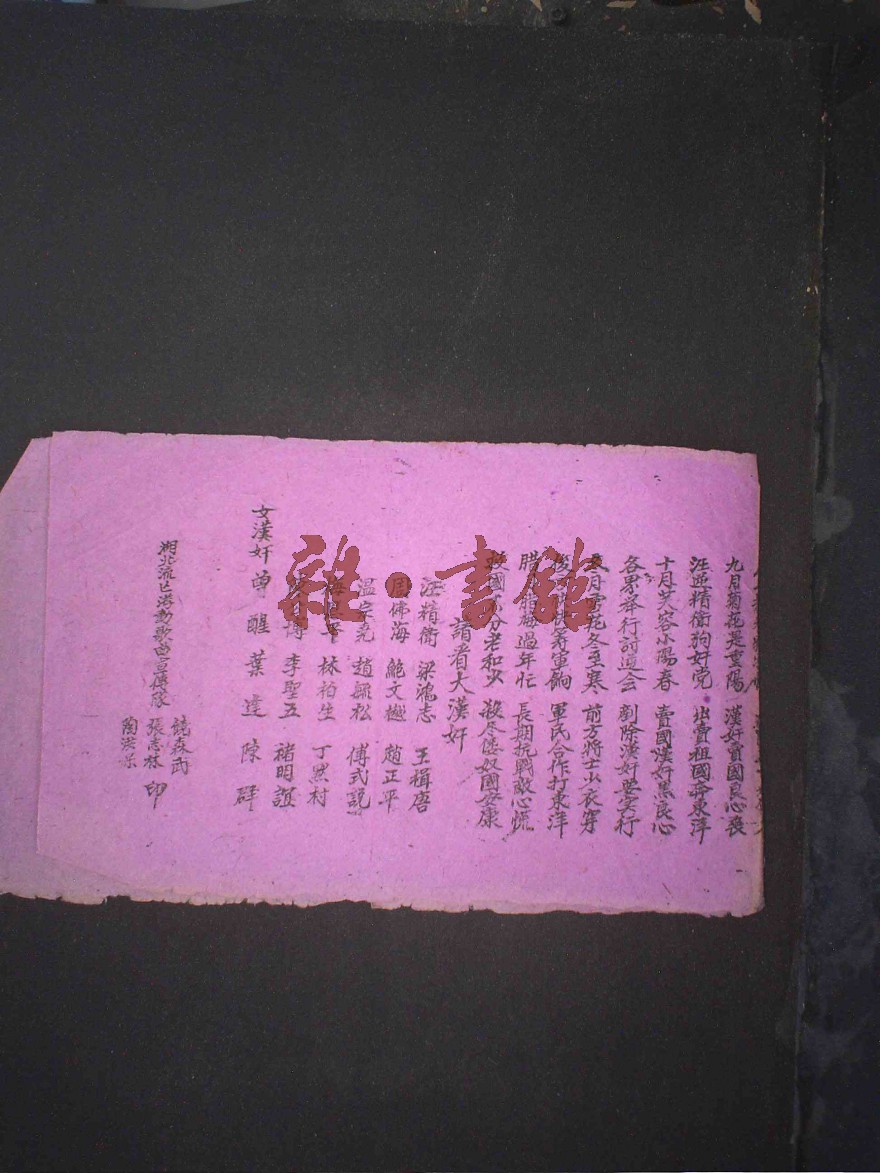 九月菊花是重陽 漢奸賣國良心喪
汪逆精衛狗奸党 出賣祖國奔東洋
十月芙容小陽春 賣國漢奸黑良心
各界举行討逆会 剷除漢奸要实行
月雪花冬至寒 前方將士少衣穿
軍餉 軍民合作打東洋
腊 過年忙 長期抗戰敵心慌
國 分老和少 殺尽倭奴國安康
請看大漢奸
汪精衛 梁鴻志 王楫唐
周佛海 鮑文樾 趙正平
温宗尭 趙毓松 傅式説
梅 平 林柏生 丁黙村
陳 博 李聖五 禇明誼
女漢奸 曽醒 葉逹 陳辟
湖北流 港勤歌曲宣傳隊
饒森甫
張志林 印
陶洪
雜·書館